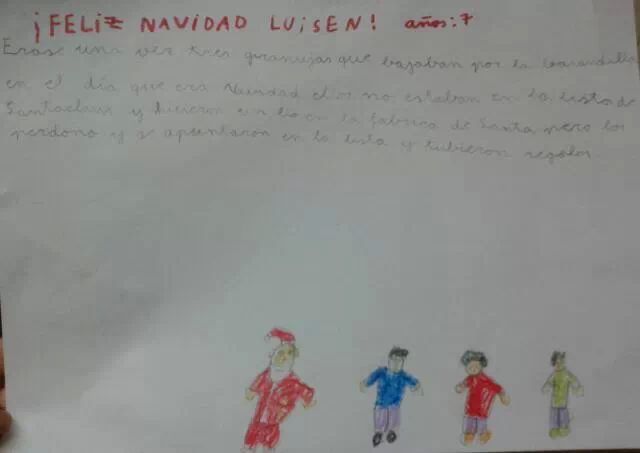 ¡FELIZ NAVIDAD LUISEN! años:7
Erase una vez tres granujas que bajaban por la barandilla
en el día que era Navidad no estaban en la lista de
Santaclaus y hicieron en la fabrica de Santa pero los
perdono y se apuntaron en la lista y tubieron regalos